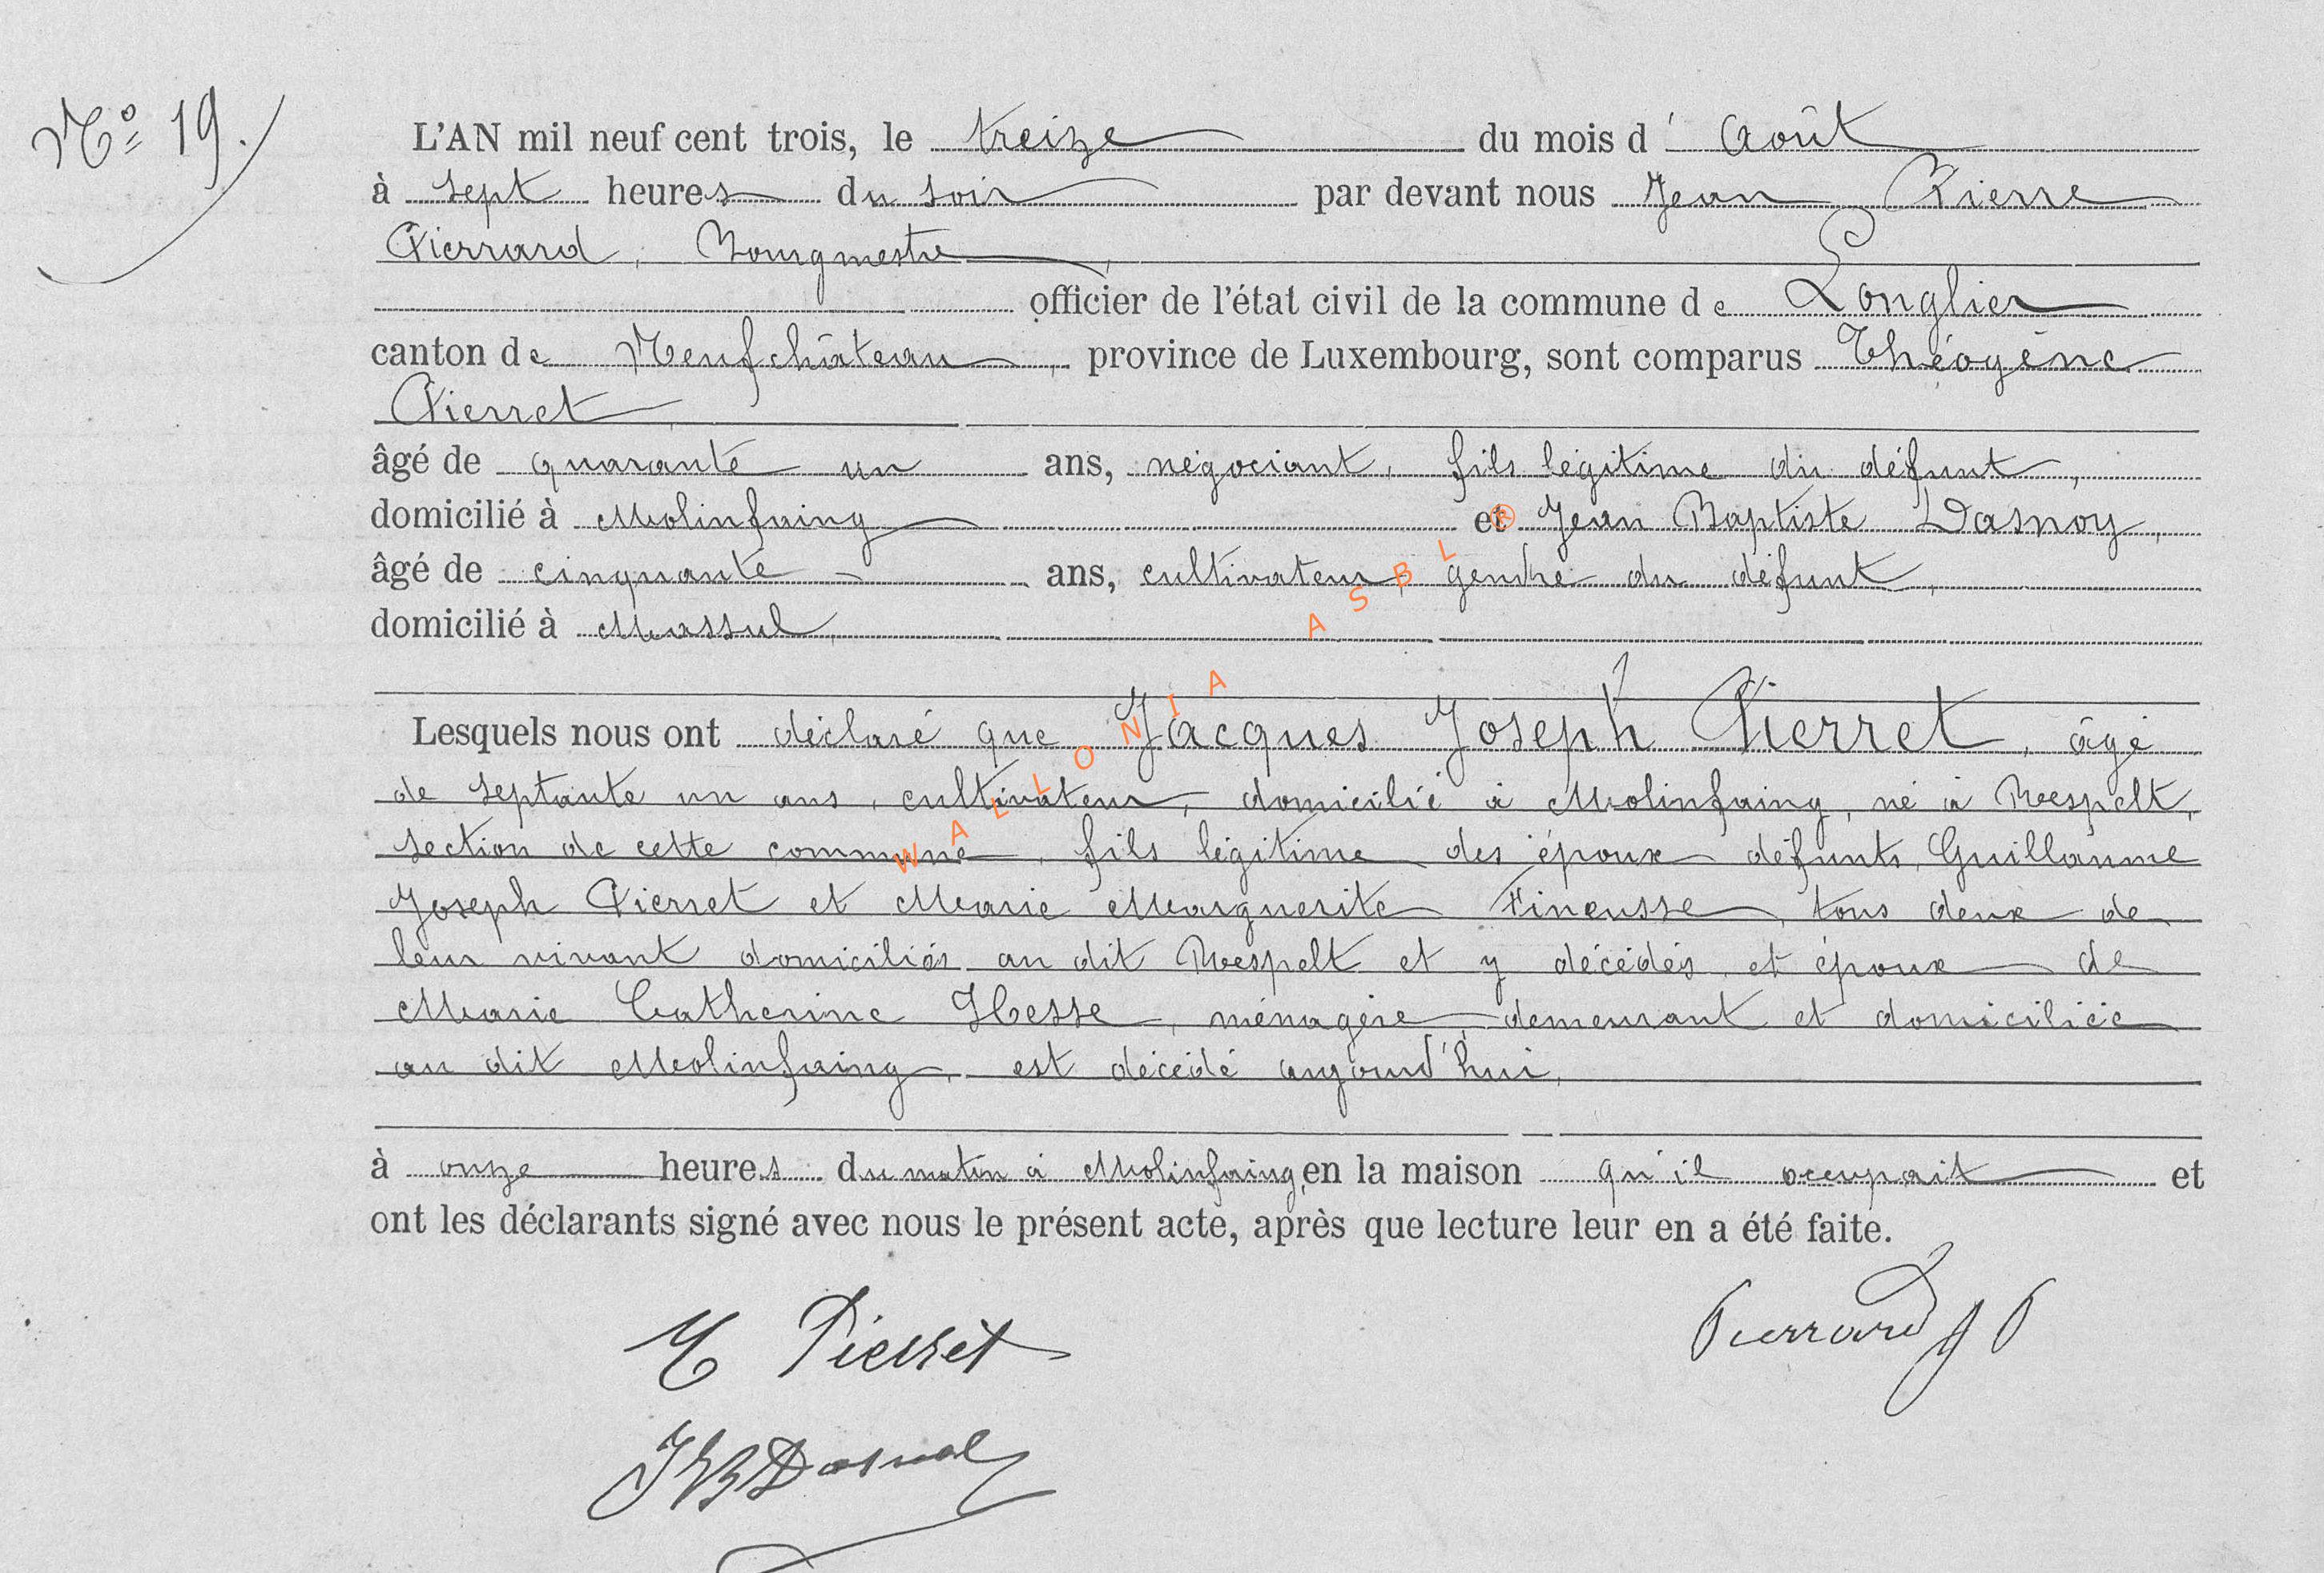 Nº 19.
L'AN mil neuf cent trois, le treize du mois d'Août
à sept heures du soir par devant nous Jean Pierre
Pierrard, Bourgmestre,
officier de l'état civil de la commune de Longlier
canton de Neufchâteau, province de Luxembourg, sont comparus Théogène
Pierret,
âgé de quarante un ans, négociant, fils légitime du défunt,
domicilié à Molinfaing et Jean Baptiste Dasnoy,
âgé de cinquante ans, cultivateur, gendre du défunt,
domicilié à Massul,
Lesquels nous ont déclaré que Jacques Joseph Pierret, âgé
de septante un ans, cultivateur, domicilié à Molinfaing, né à Respelt,
section de cette commune, fils légitime des époux défunts Guillaume
Joseph Pierret et Marie Marguerite Fineusse, tous deux de
leur vivant domiciliés au dit Respelt et y décédés et époux de
Marie Catherine Hesse, ménagère, demeurant et domiciliée
au dit Molinfaing, est décédé aujourd'hui,
à onze heures du matin à Molinfaing, en la maison qu'il occupait et
ont les déclarants signé avec nous le présent acte, après que lecture leur en a été faite.
Pierret
Pierrard JP
JB Dasnoy
WALLONIA ASBL ®